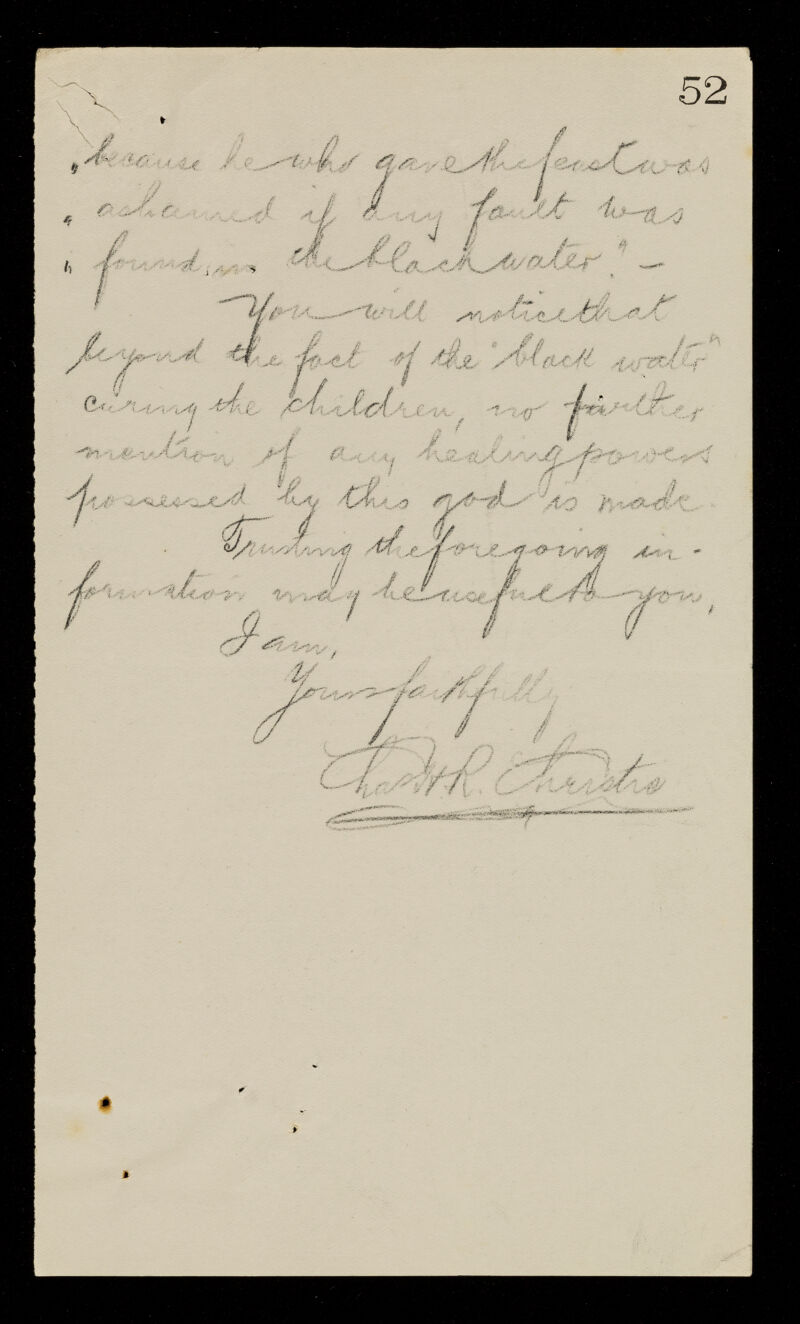 52
„ because he who gave the feast was
„ ashamed if any fault was
„ found in the black water." –
You will notice that
beyond the fact of the "black water"
curing the children, no further
mention of any healing powers
possessed by this god is made.
Trusting the foregoing in-
formation may be useful to you,
I am,
Yours faithfully
Chas H. R. Christie